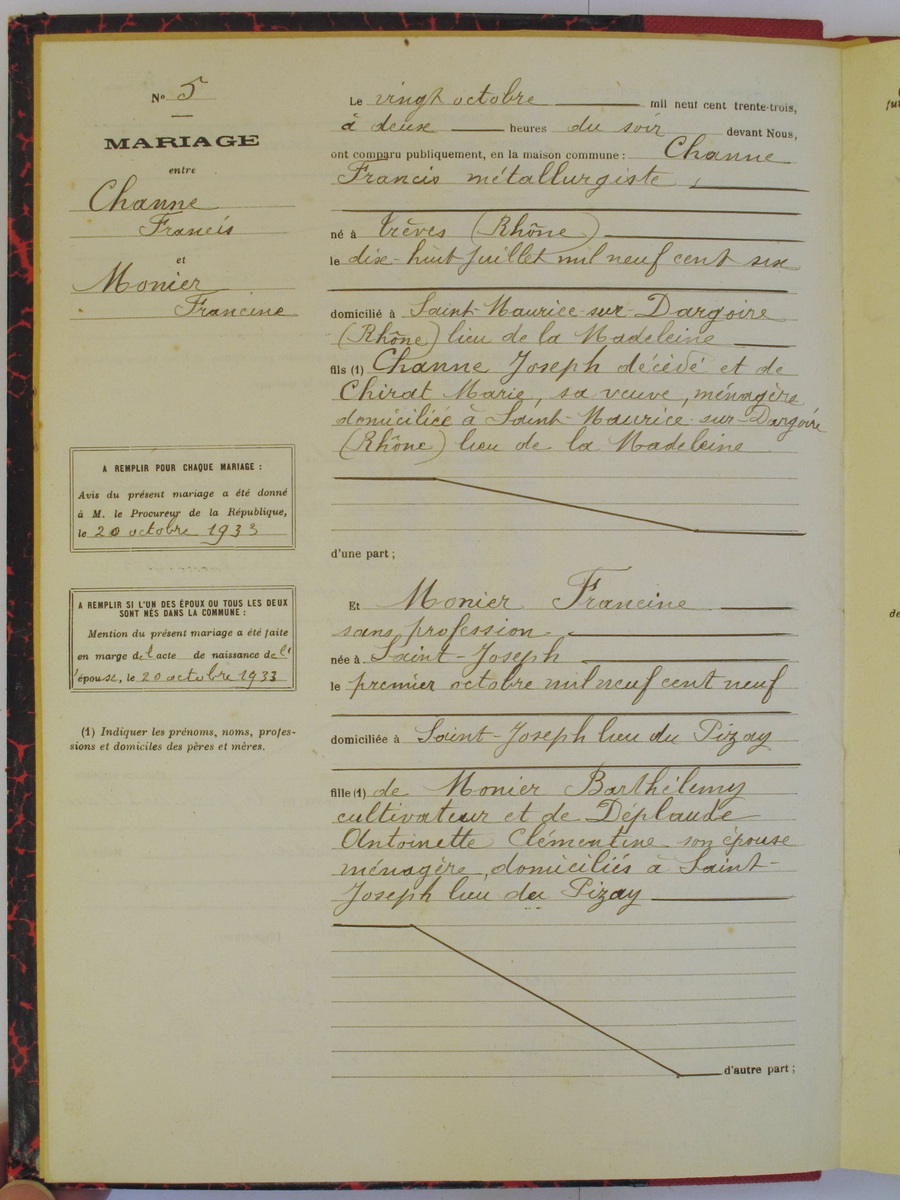 N° 5
MARIAGE
entre
Channe
Francis
et
Monier
Francine
A REMPLIR POUR CHAQUE MARIAGE :
Avis du présent mariage a été donné
à M. le Procureur de la République,
le 20 octobre 1933
A REMPLIR SI L'UN DES ÉPOUX OU TOUS LES DEUX
SONT NÉS DANS LA COMMUNE :
Mention du présent mariage a été faite
en marge de l'acte de naissance de l'
épouse, le 20 octobre 1933
(1) Indiquer les prénoms, noms, profes-
sions et domiciles des pères et mères.
Le vingt octobre mil neuf cent trente-trois,
à deux heures du soir devant Nous,
ont comparu publiquement, en la maison commune : Channe
Francis métallurgiste,
né à Trèves (Rhône)
le dix-huit juillet mil neuf cent six
domicilié à Saint-Maurice-sur-Dargoire
(Rhône) lieu de la Madeleine
fils (1) Channe Joseph décédé et de
Chirat Marie, sa veuve, ménagère
domiciliée à Saint-Maurice-sur-Dargoire
(Rhône) lieu de la Madeleine
d'une part ;
Et Monier Francine
sans profession
née à Saint-Joseph
le premier octobre mil neuf cent neuf
domiciliée à Saint-Joseph lieu du Pizay
fille (1) de Monier Barthélemy
cultivateur et de Déplaude
Antoinette Clémentine son épouse
ménagère, domiciliés à Saint-
Joseph lieu du Pizay
d'autre part ;